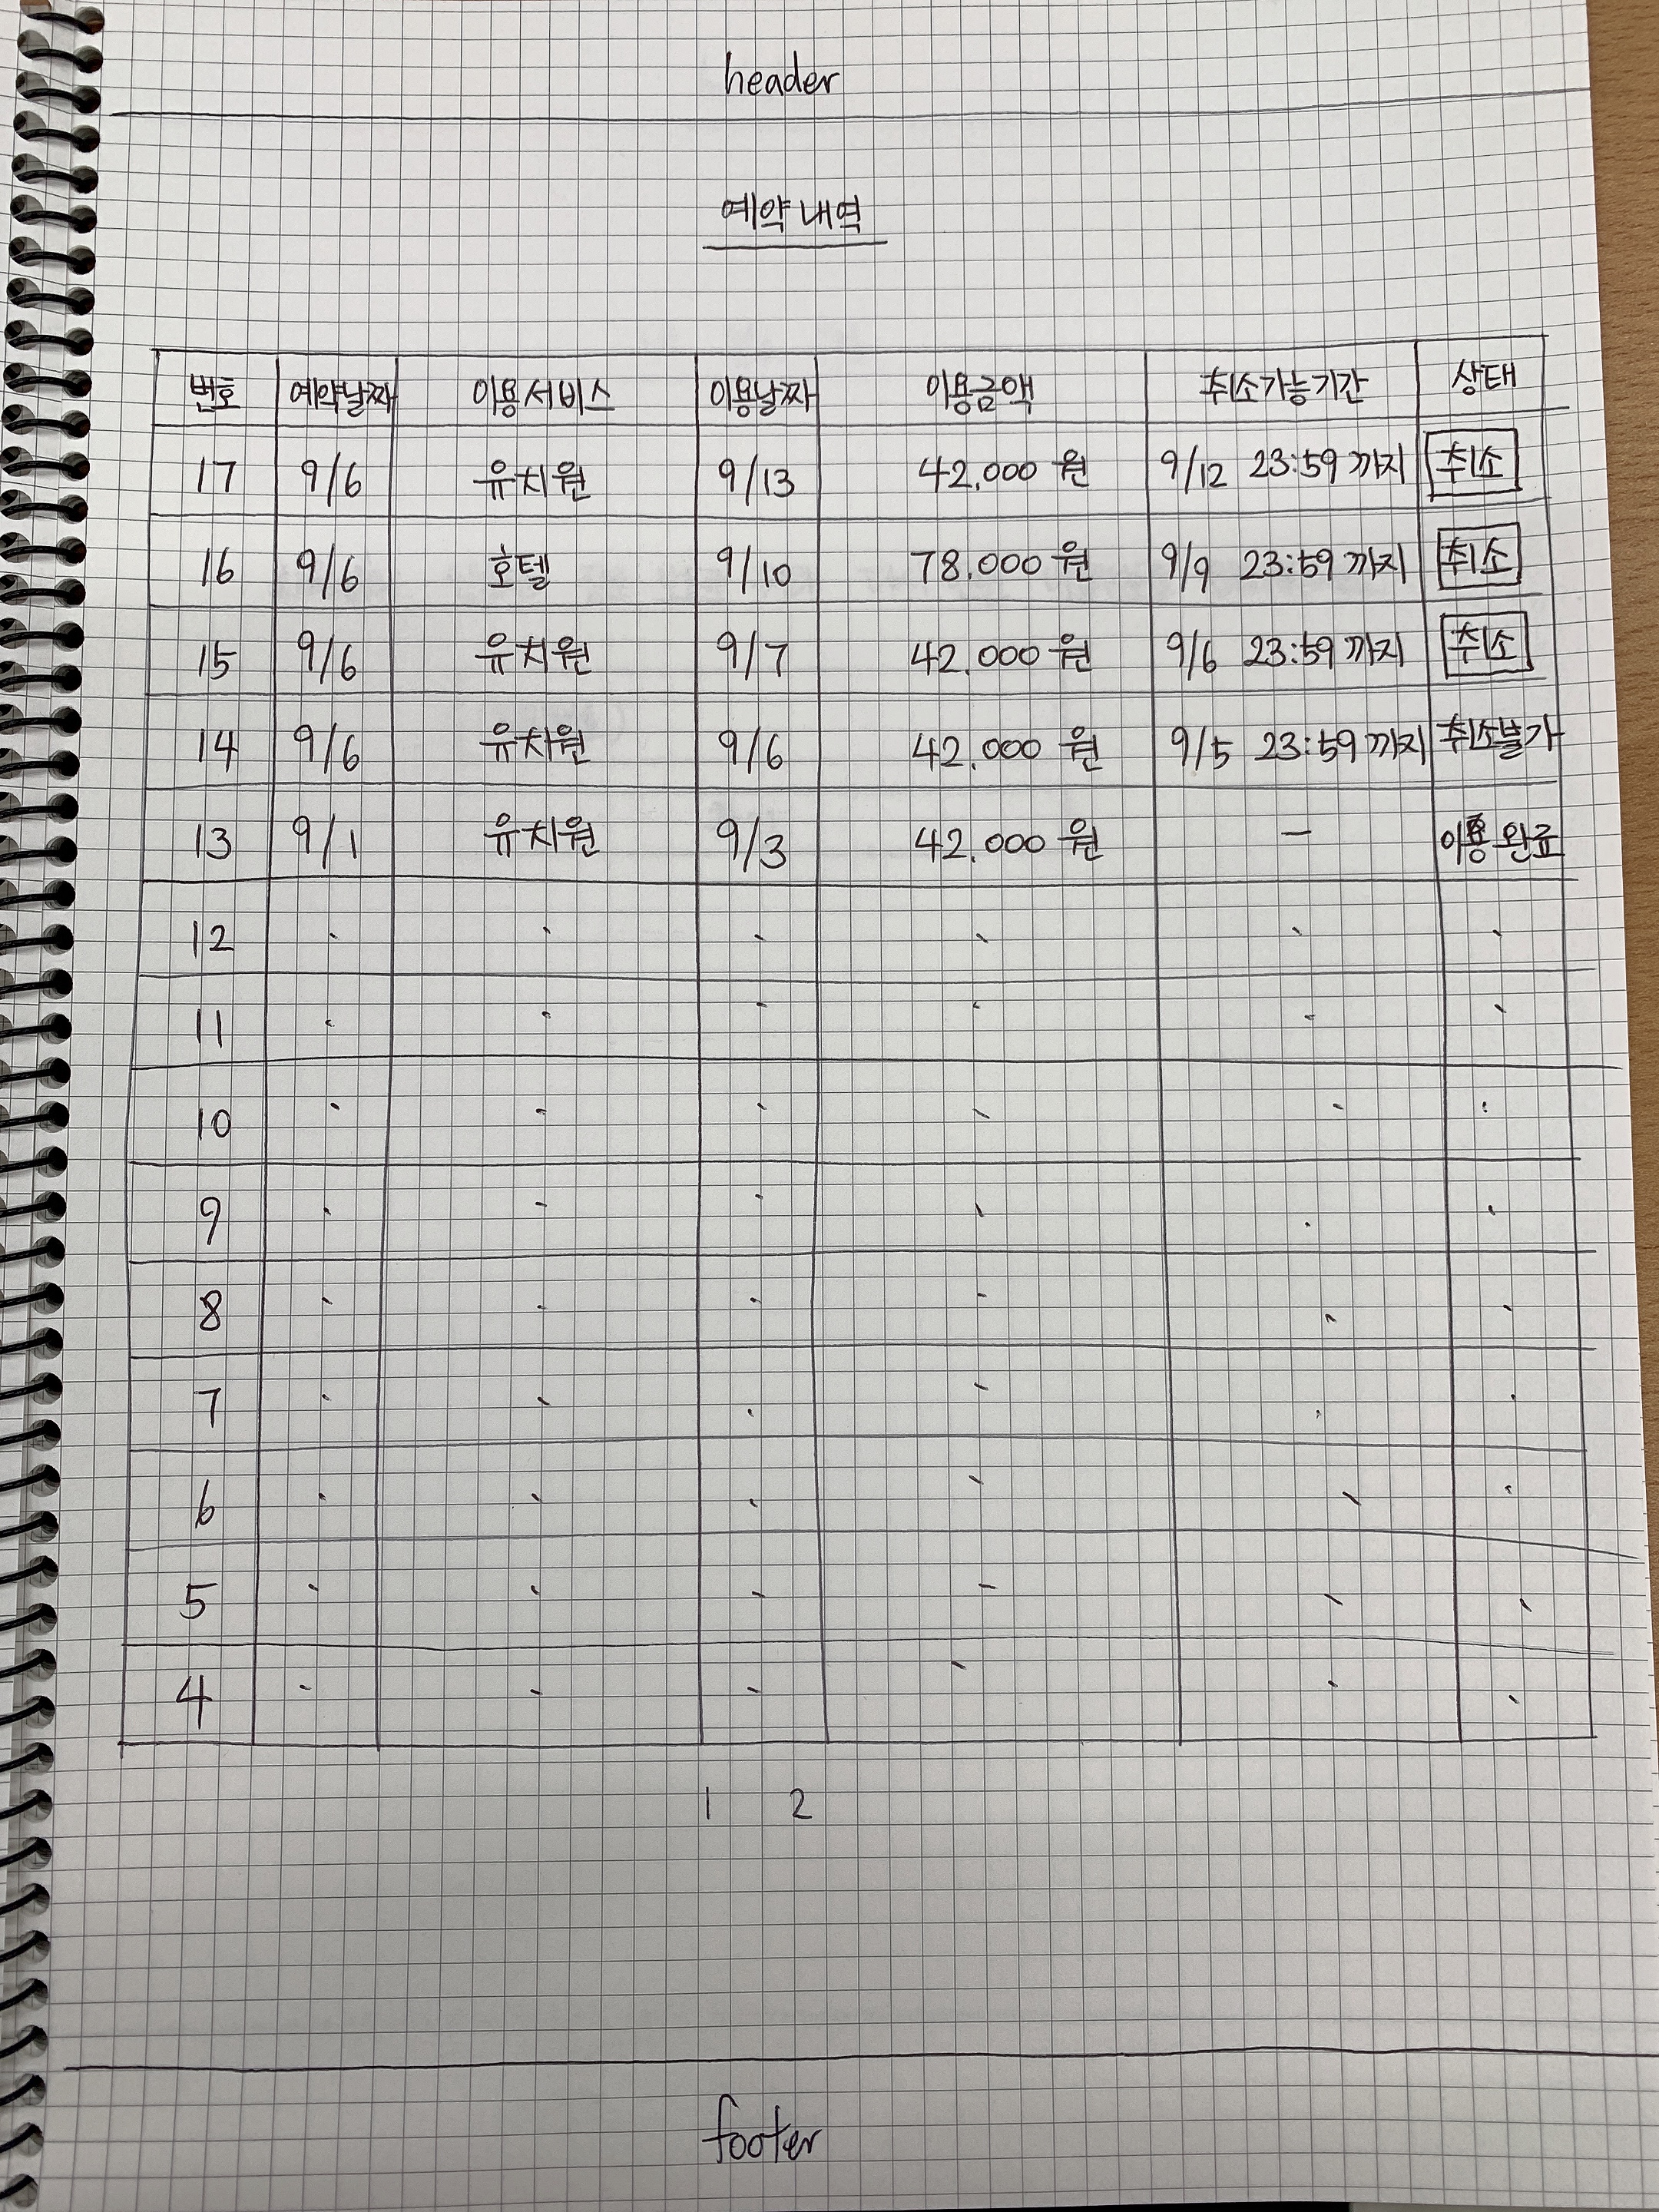 header
예약내역
번호 예약날짜 이용서비스 이용날짜 이용금액 취소가능기간 상태
17 9/6 유치원 9/13 42.000 원 9/12 23:59 까지 취소
16 9/6 호텔 9/10 78.000 원 9/9 23:59 까지 취소
15 9/6 유치원 9/7 42.000 원 9/6 23:59 까지 취소
14 9/6 유치원 9/6 42.000 원 9/5 23:59 까지 취소불가
13 9/1 유치원 9/3 42.000 원 - 이용완료
12
11
10
9
8
7
6
5
4
1 2
footer